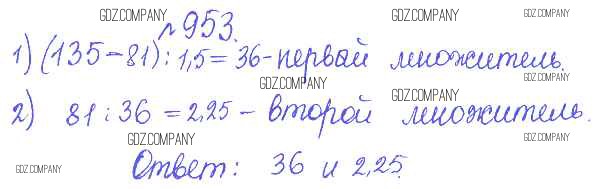 GDZ.COMPANY
№953.
GDZ.COMPANY GDZ.COMPANY
1) (135-81):1,5=36-первый множитель.
GDZ.COMPANY GDZ.COMPANY
GDZ.COMPANY
2) 81:36=2,25- второй множитель.
GDZ.COMPANY GDZ.COMPANY
GDZ.COMPANY Ответ: 36 и 2,25.
GDZ.COMPANY